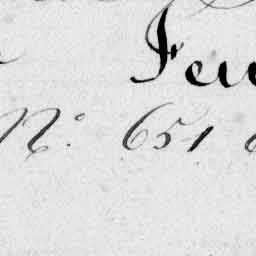 Feu
N.º 651